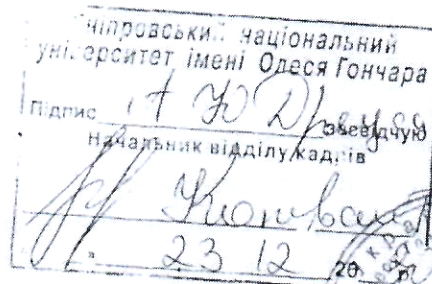 Дніпровський національний
університет імені Олеся Гончара
Підпис А Ю Д засвідчую
Начальник відділу кадрів
23 12 20 р.